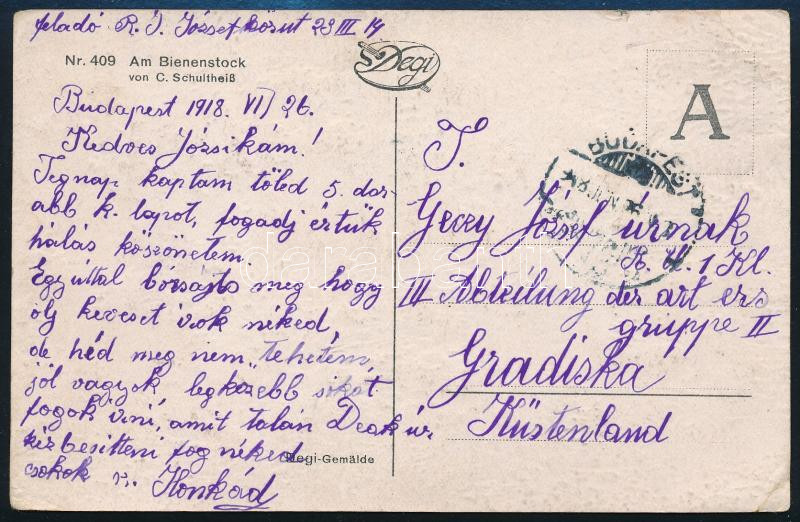 feladó R. I. József körut 29 III 14
Nr. 409 Am Bienenstock
von C. Schultheiß
Degi
A
BUDAPEST
Budapest 1918. VI/26.
Kedves Józsikám!
Tegnap kaptam tőled 5. dar-
abb k. lapot, fogadj értük
hálás köszönetem.
Egyúttal bócsajts meg hogy
oly keveset irok néked,
de héd meg nem tehetem,
jól vagyok legközebb sokat
fogok irni, amit talán Deák úr
kézbesitteni fog néked.
csokok
Konkád
T.
Geczy József úrnak
R. H. 1 Kl.
III Abteilung der art ers
gruppe II
Gradiska
Küstenland
Degi-Gemälde